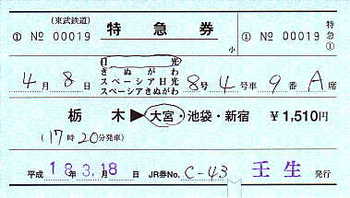 (東武鉄道) 特急券
① № 00019 小 ① № 00019 特急①
日光
きぬがわ
スペーシア日光
スペーシアきぬがわ
4月8日 8号 4号車 9番 A席
栃木▶大宮・池袋・新宿 ¥1,510円
(17時20分発車)
平成18年3.月18日 JR券No. C-43 壬生発行